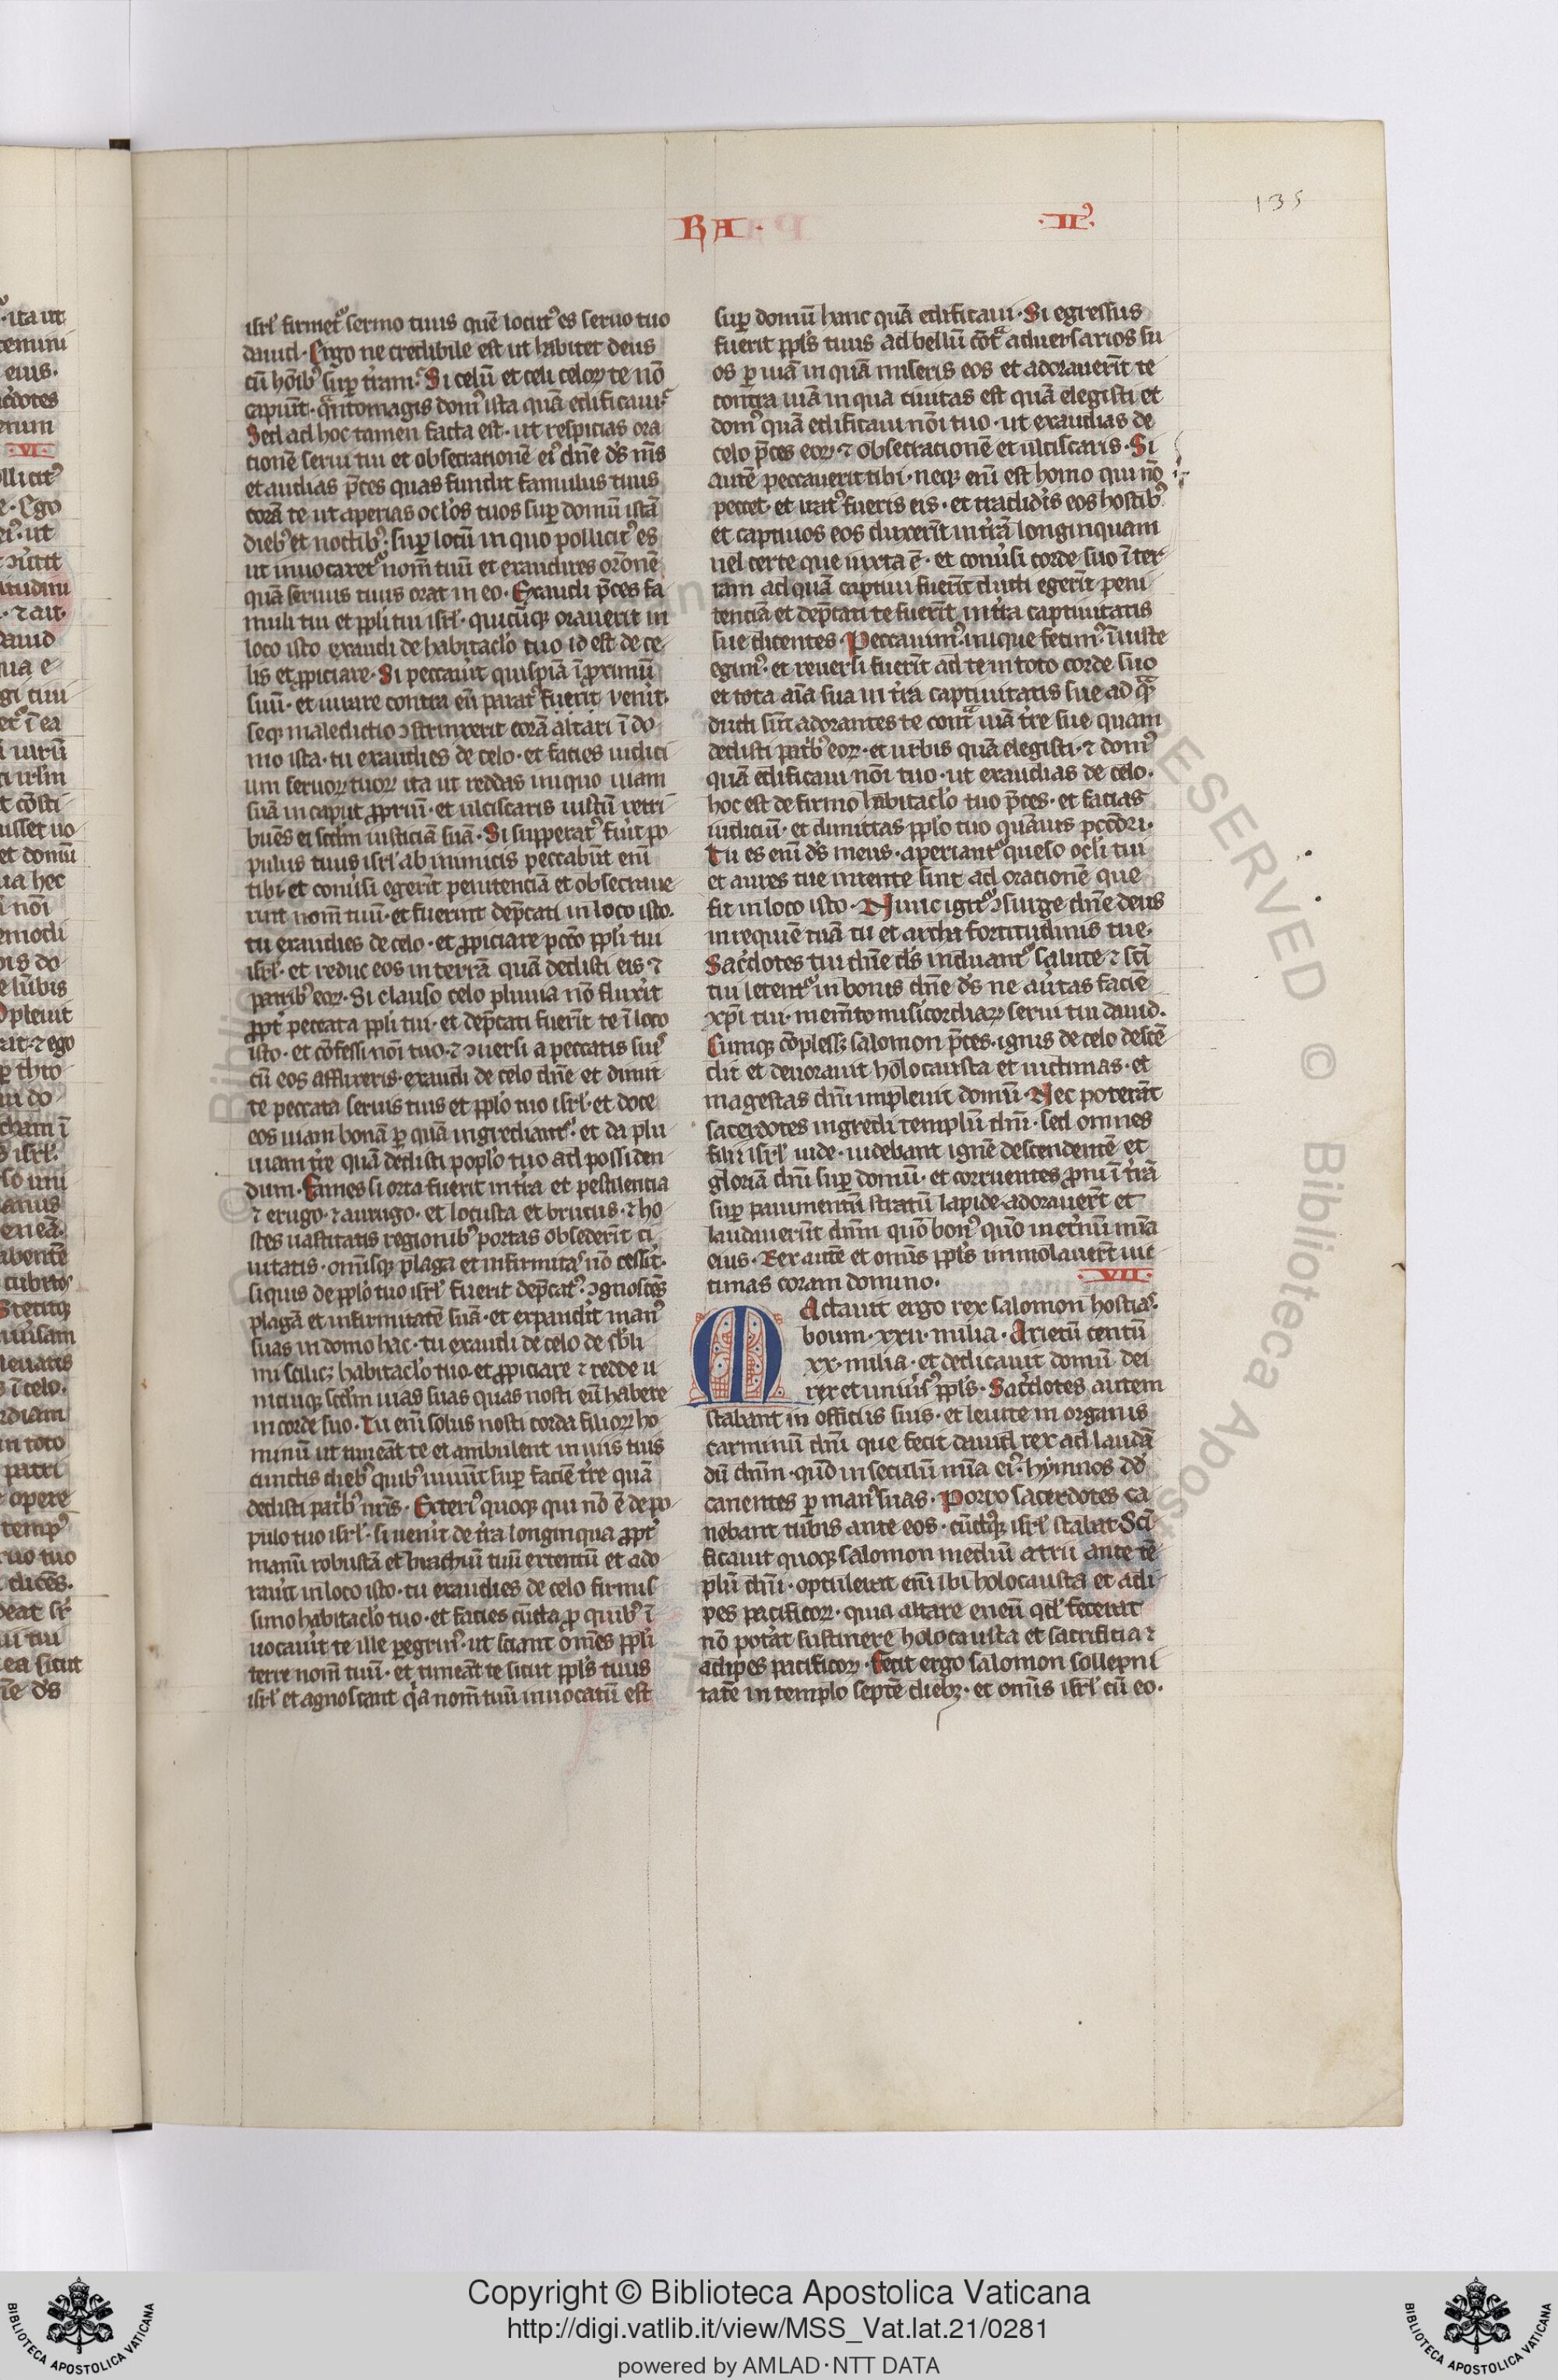 RA·
·II᾿·
135
isrl' firmet᾿ sermo tuus quē locut᾿ es seruo tuo
dauid· Ergo ne credibile est ut habitet deus
cū hōib᾿ sup t̄ram· Si celū et celi celoꝝ te nō
capiūt· q̄ntomagis dom᾿ ista quā edificaui·
Sed ad hoc tamen facta est· ut respicias ora
tionē serui tui et obsecrationē ei᾿ dn̄e ds̄ ms̄
et audias p̄ces quas fundit famulus tuus
corā te ut aperias oclo's tuos sup domū istā
dieb᾿ et noctib᾿· sup locū in quo pollicit᾿ es
ut inuocaret᾿ nom̄ tuū et exaudires orōnē
quā seruus tuus orat in eo· Exaudi p̄ces fa
muli tui et ppli tui isrl'· quicūqꝫ orauerit in
loco isto exaudi de habitaclo' tuo id est de ce
lis et ꝓpiciare· Si peccau'it quispiā ī ꝓximū
suū· et iurare contra eū parat᾿ fuerit, uen'it·
seqꝫ maledictio ꝯstrinxerit corā altari ī do
mo ista· tu exaudies de celo· et facies iudici
um seruoꝝ tuoꝝ ita ut reddas iniquo uiam
suā in caput ꝓpriū· et ulciscaris iustū retri
buēs ei scd̄m iusticiā suā· Si supperat᾿ fu'it po
pulus tuus isrl' ab inimicis peccabūt eni
tibi· et conu'si egerīt penitenciā et obsecraue
rint nom̄ tuū· et fuerint dep̄cati in loco isto·
tu exaudies de celo· et ꝓpiciare pccō ppli tui
isrl'· et reduc eos in terrā quā dedisti eis ⁊
patrib᾿ eoꝝ· Si clauso celo pluuia nō flux'it
ꝓpt' peccata ppli tui· et dep̄cati fuerīt te ī loco
isto· et cōfessi nōi tuo· ⁊ ꝯuersi a peccatis suis
cū eos afflixeris· exaudi de celo dn̄e et dimit
te peccata seruis tuis et pplo tuo isrl'· et doce
eos uiam bonā p quā ingrediant᾿· et da plu
uiam tr̄e quā dedisti poplo' tuo ad possiden
dum· Fames si orta fuerit in tr̄a et pestilencia
⁊ erugo· ⁊ aurugo· et locusta et brucus· ⁊ ho
stes uastitatis regionib᾿ portas obsederīt ci
uitatis· omīsqꝫ plaga et infirmitas nō cess'it·
siquis de pplo tuo isrl' fuerit dep̄cat᾿· ꝯgnoscēs
plagā et infirmitatē suā· et expandit man᾿
suas in domo hac· tu exaudi de celo de sb̄li
mi scilicꝫ habitaclo' tuo· et ꝓpiciare ⁊ redde u
nicuiqꝫ scd̄m uias suas quas nosti eū habere
in corde suo· Tu eni solus nosti corda filioꝝ ho
minū ut timeāt te et ambulent in uiis tuis
cunctis dieb᾿ quib᾿ uiuūt sup faciē tr̄e quā
dedisti pat'b᾿ nr̄is· Exteri᾿ quoqꝫ qui nō ē de po
pulo tuo isrl'· si uen'it de tr̄a longinqua ꝓpt'
manū robustā et brachiū tuū extentū et ado
rau'it in loco isto· tu exaudies de celo firmis
simo habitaclo' tuo· et facies cūcta ꝓ quib᾿ ī
uocau'it te ille pegrin᾿· ut sciant om̄es ppli
terre nom̄ tuū· et timeāt te sicut ppls tuus
isrl' et agnoscant q'a nom̄ tuū inuocatū est
sup domū hanc quā edificaui· Si egressus
fuerit ppls tuus ad bellū cōtᷓ aduersarios su
os p uiā in quā miseris eos et adorauerīt te
contra uiā in qua ciuitas est quā elegisti et
dom᾿ quā edificaui nōi tuo· ut exaudias de
celo p̄ces eoꝝ· ⁊ obsecrationē et ulciscaris· Si
autē peccauerit tibi· neqꝫ eni est homo qui nō
peccet· et irat᾿ fueris eis· et tradid'is eos hostib᾿
et captiuos eos duxerīt in tr̄ā longinquam
uel certe que iuxta ē· et conu'si corde suo ī ter
ram ad quā captiui fuerīt ducti egerīt peni
tenciā et dep̄cati te fuerīt in tr̄a captiuitatis
sue dicentes· Peccauim᾿· inique fecim᾿· īiuste
egim᾿· et reuersi fuerīt ad te in toto corde suo
et tota aīa sua in tr̄a captiuitatis sue ad qᷓ
ducti sūt adorantes te contᷓ uiā tr̄e sue quam
dedisti pat'b᾿ eoꝝ· et urbis quā elegisti· ⁊ dom᾿
quā edificaui nōi tuo· ut exaudias de celo·
hoc est de firmo habitaclo' tuo p̄ces· et facias
iudiciū· et dimittas pplo tuo quāuis pccōri·
Tu es eni ds̄ meus· aperiant᾿ queso ocli' tui
et aures tue intente sint ad orationē que
fit in loco isto· Nunc igit᾿ ꝯsurge dn̄e deus
in requiē tuā tu et archa fortitudinis tue·
Sac'dotes tui dn̄e ds̄ induant᾿ salute ⁊ sc̄i
tui letent᾿ in bonis dn̄e ds̄ ne au'tas faciē
xp̄i tui· mem̄to mis'icordiaꝝ serui tui dauid·
Cumqꝫ cōplessꝫ salomon p̄ces· ignis de celo descē
dit et deuorauit holocausta et uictimas· et
magestas dn̄i impleuit domū· Nec poterāt
sacerdotes ingredi templū dn̄i· sed omnes
filii isrl' uide· uidebant ignē descendentē et
gloriā dn̄i sup domū· et corruentes ꝓni ī tr̄ā
sup pauimentū stratū lapide· adorauer̄t et
laudauerūt dn̄m quō bon᾿ quō in et'nū mīa
eius· Rex autē et omīs ppls immolauer̄t uic
timas coram domino·
·VII·
Mactauit ergo rex salomon hostias·
boum· xxii· milia· Arietū centū
xx· milia· et dedicauit domū dei
rex et uniu's᾿ ppls· Sac'dotes autem
stabant in officiis suis· et leuite in organis
carminū dn̄i que fecit dauid rex ad laudā
dū dn̄m· qūo in seculū mīa ei᾿· hymnos dd᾿
canentes p man᾿ suas· Porro sacerdotes ca
nebant tubis ante eos· cūctqꝫ isrl' stabat Sc̄i
ficauit quoqꝫ salomon mediū atrii ante tē
plū dn̄i· optulerat eni ibi holocausta et adi
pes pacificoꝝ· quia altare eneū qd' fecerat
nō pot'at sustinere holocausta et sacrificia ⁊
adipes pacificoꝝ· Fecit ergo salomon sollepni
tatē in templo septē diebꝫ· et omīs isrl' cū eo·
Copyright © Biblioteca Apostolica Vaticana
http://digi.vatlib.it/view/MSS_Vat.lat.21/0281
powered by AMLAD·NTT DATA
BIBLIOTECA APOSTOLICA VATICANA
BIBLIOTECA APOSTOLICA VATICANA